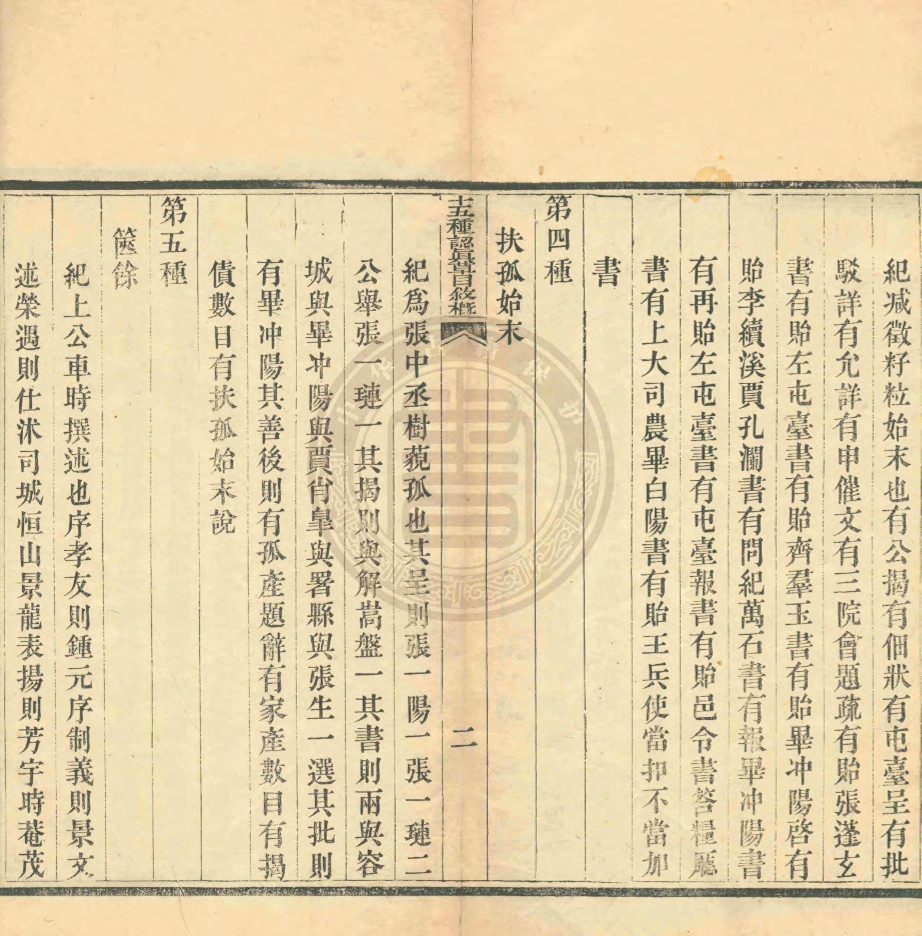 紀減徵籽粒始末也有公揭有佃狀有屯臺呈有批
駁詳有允詳有申催文有三院會題疏有貽張蓬玄
書有貽左屯臺書有貽齊羣玉書有貽畢冲陽啓有
貽李續溪賈孔瀾書有問紀萬石書有報畢冲陽書
有再貽左屯臺書有屯臺報書有貽邑令書答糧廳
書有上大司農畢白陽書有貽王兵使當抑不當加
書
第四種
扶孤始末
十五種認眞草自敘槪
二
紀爲張中丞樹藐孤也其呈則張一陽一張一璉二
公舉張一璉一其揭則與解嵩盤一其書則兩與容
城與畢冲陽與賈肖臯與署縣與張生一選其批則
有畢冲陽其善後則有孤產題辭有家產數目有揭
債數目有扶孤始末說
第五種
篋餘
紀上公車時撰述也序孝友則鍾元序制義則景文
述榮遇則仕沭司城恒山景龍表揚則芳宇時菴茂